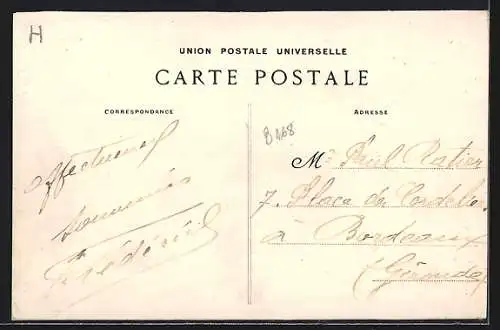 H
UNION POSTALE UNIVERSELLE
CARTE POSTALE
CORRESPONDANCE
ADRESSE
B 468
Affectueux
souvenirs
Frédéric
Mr Paul Ratier
7. Place des Cordeliers
à Bordeaux
(Gironde)